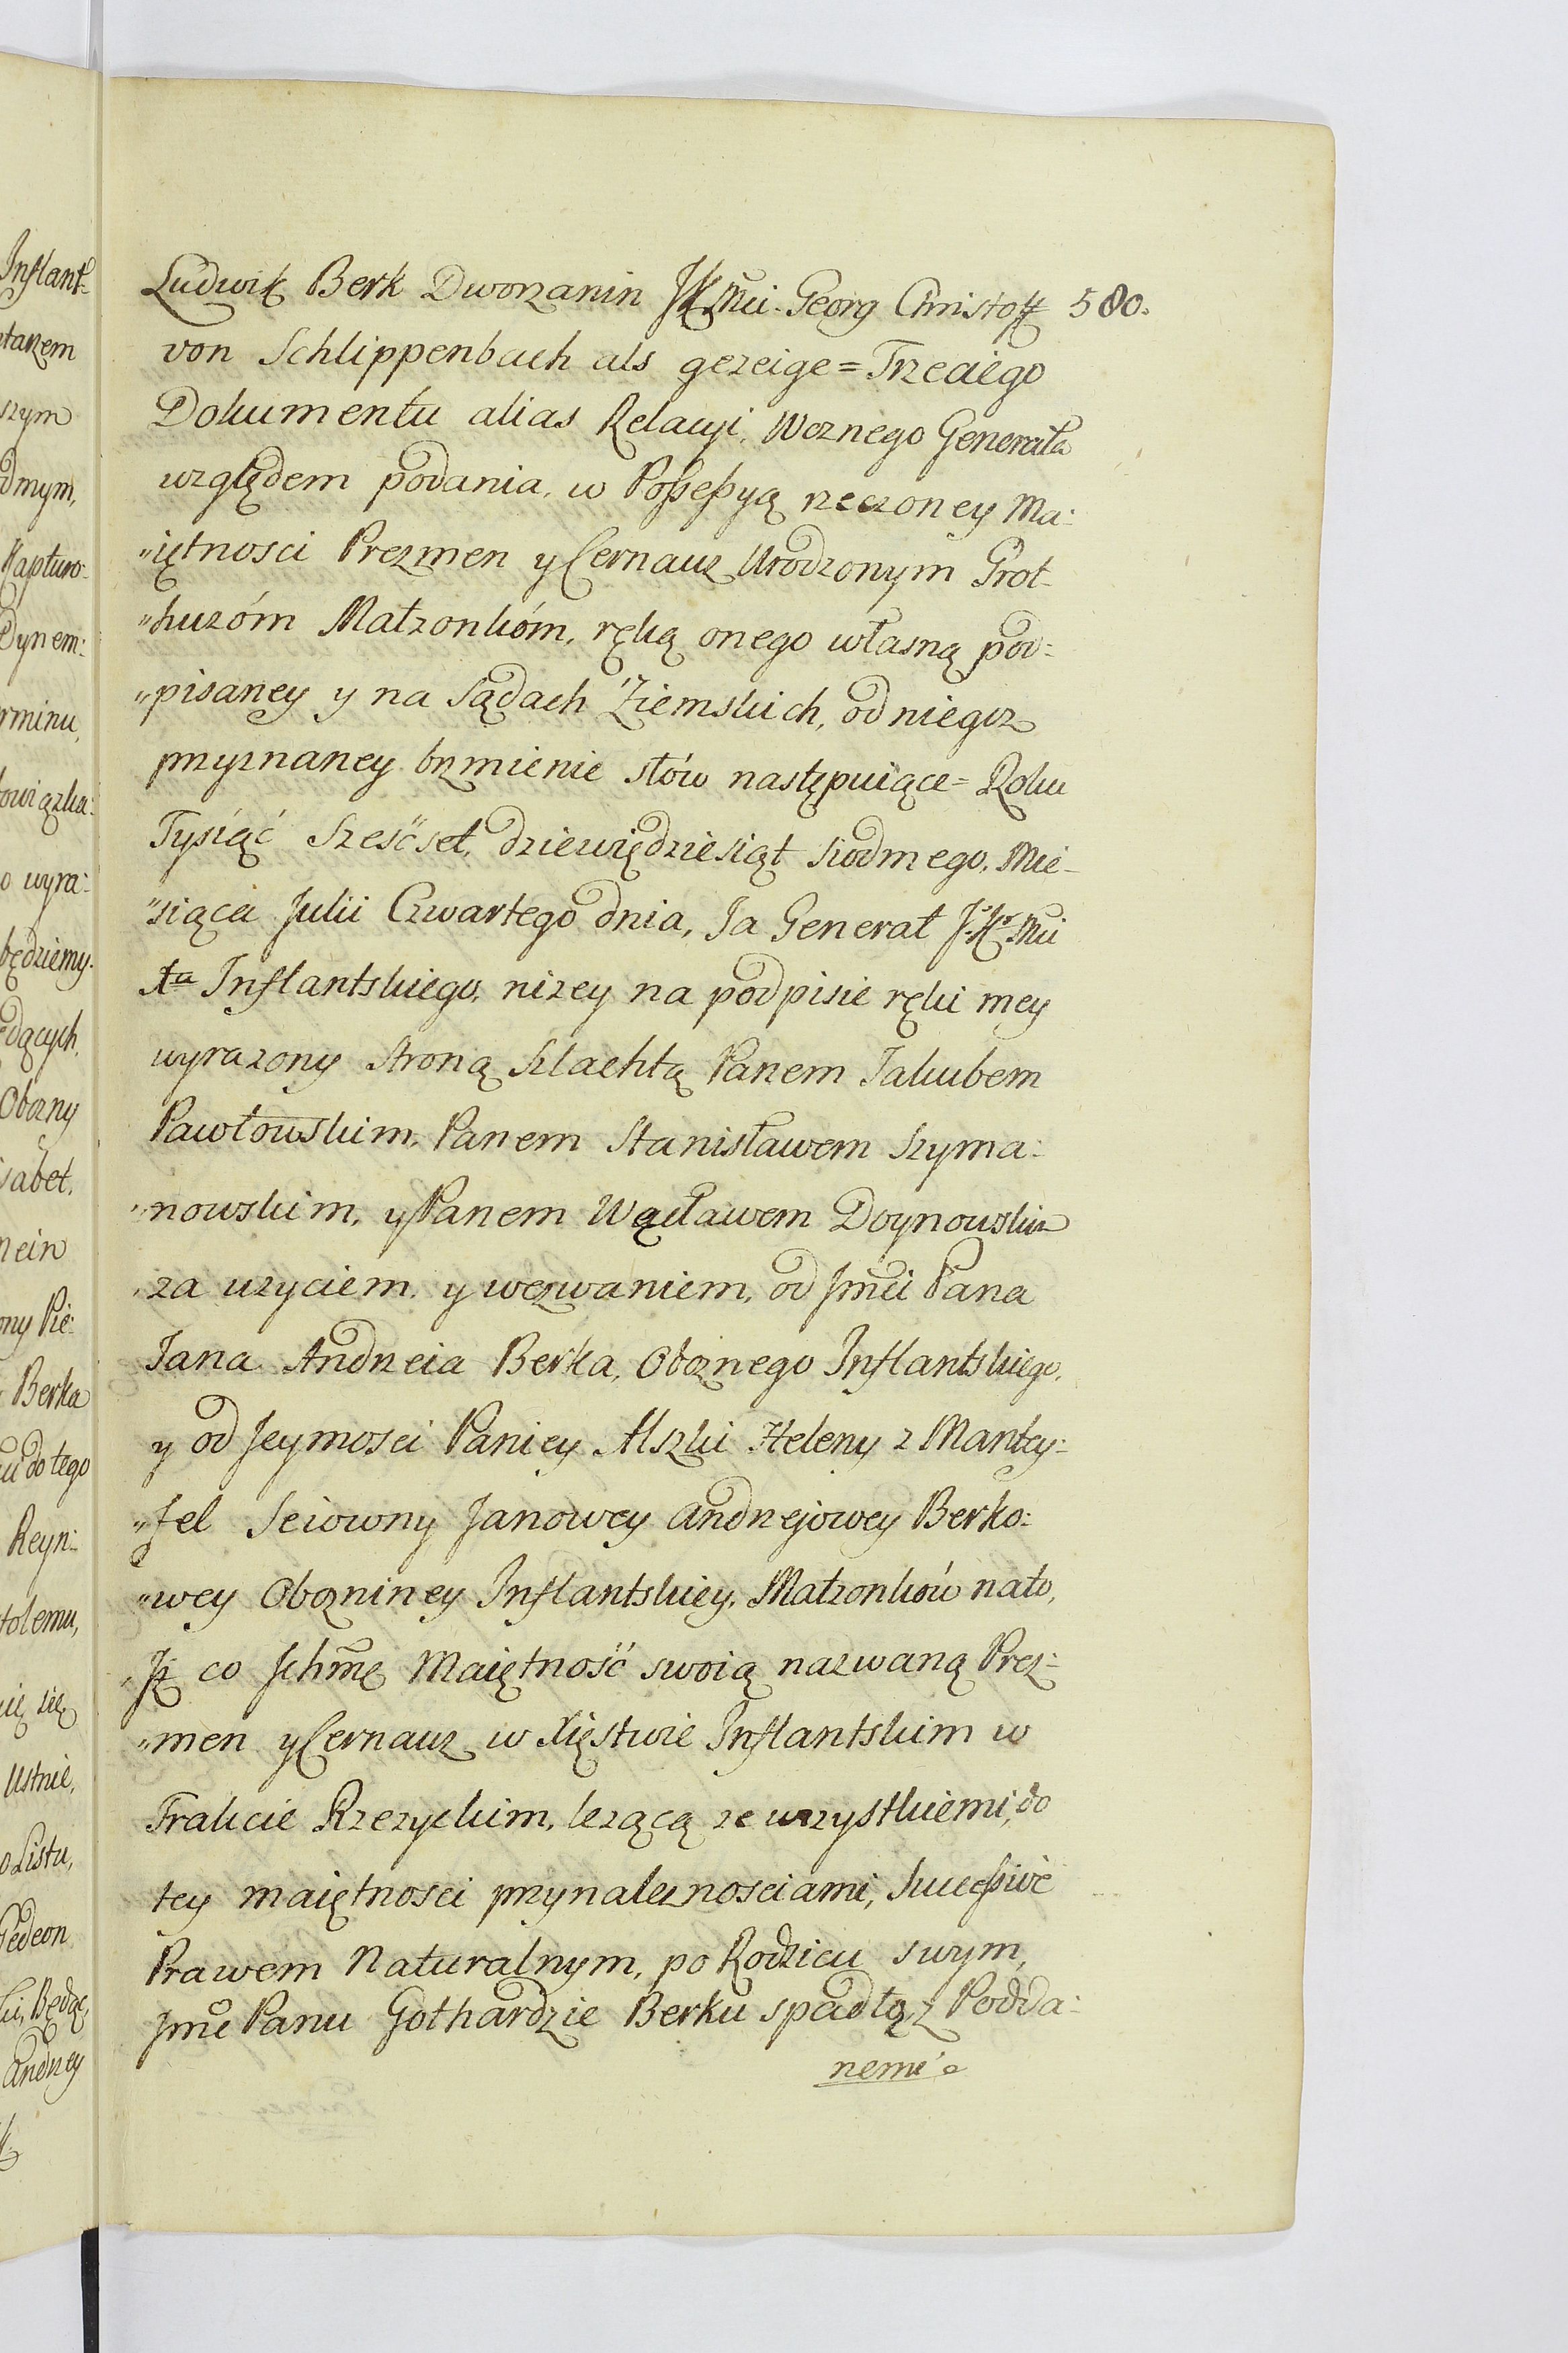 Inflant-
tarzem
szym
dmym,
Kapturo-
Dynem:
rminu,
owiązka:
o wyra:
będziemy.
edących.
Obozny
sabet.
mein
ony Pie:
Berka
u do tego
Reyn:
tolemu,
się
Ustnie,
o Listu,
Gedeon
Będąc,
Andrzey
Ludwik Berk Dworzanin JKMci. Georg Christoff 580.
von Schlippenbach als gezeige = Trzeciego
Dokumentu alias Relacyi, Woznego Generała
względem podania, w Poßeßyą rzeczoney Ma:
„iętnosci Prezmen y Cernauz Urodzonym Grot-
„huzóm Małzonkóm, ręką onego własną pod:
„pisaney y na Sądach Ziemskich, od niegoz
przyznaney brzmienie słów następuiące = Roku
Tysiąć Sześćset, dziewiędziesiąt siodmego, Mie-
„siąca Julii Czwartego dnia, Ja Generał J.K. Mci
Xa Inflantskiego, nizey na podpisie ręki mey
wyrazony stroną Szlachtą Panem Jakubem
Pawłowskim, Panem Stanisławem Szyma:
„nowskim, y Panem Wacławem Doynowskim
„za uzyciem, y wezwaniem, od Jmći Pana
Jana Andrzeia Berka, Oboznego Inflantskiego,
y od Jeymosci Paniey Alszki Heleny z Mantey:
„fel Seiowny Janowey Andrzejowey Berko:
„wey Obozniney Inflantskiey, Małzonków nato,
„Jż co Jchmę Maiętność swoią nazwaną Prez:
„men y Cernauz w Xięstwie Inflantskim w
Trakcie Rzezyckim, lezącą ze wszystkiemi, do
tey maiętnosci przynaleznosciami, Succeßive
Prawem Naturalnym, po Rodzicu swym,
Jme Panu Gothardzie Berku spadłą, z Podda:
nemi